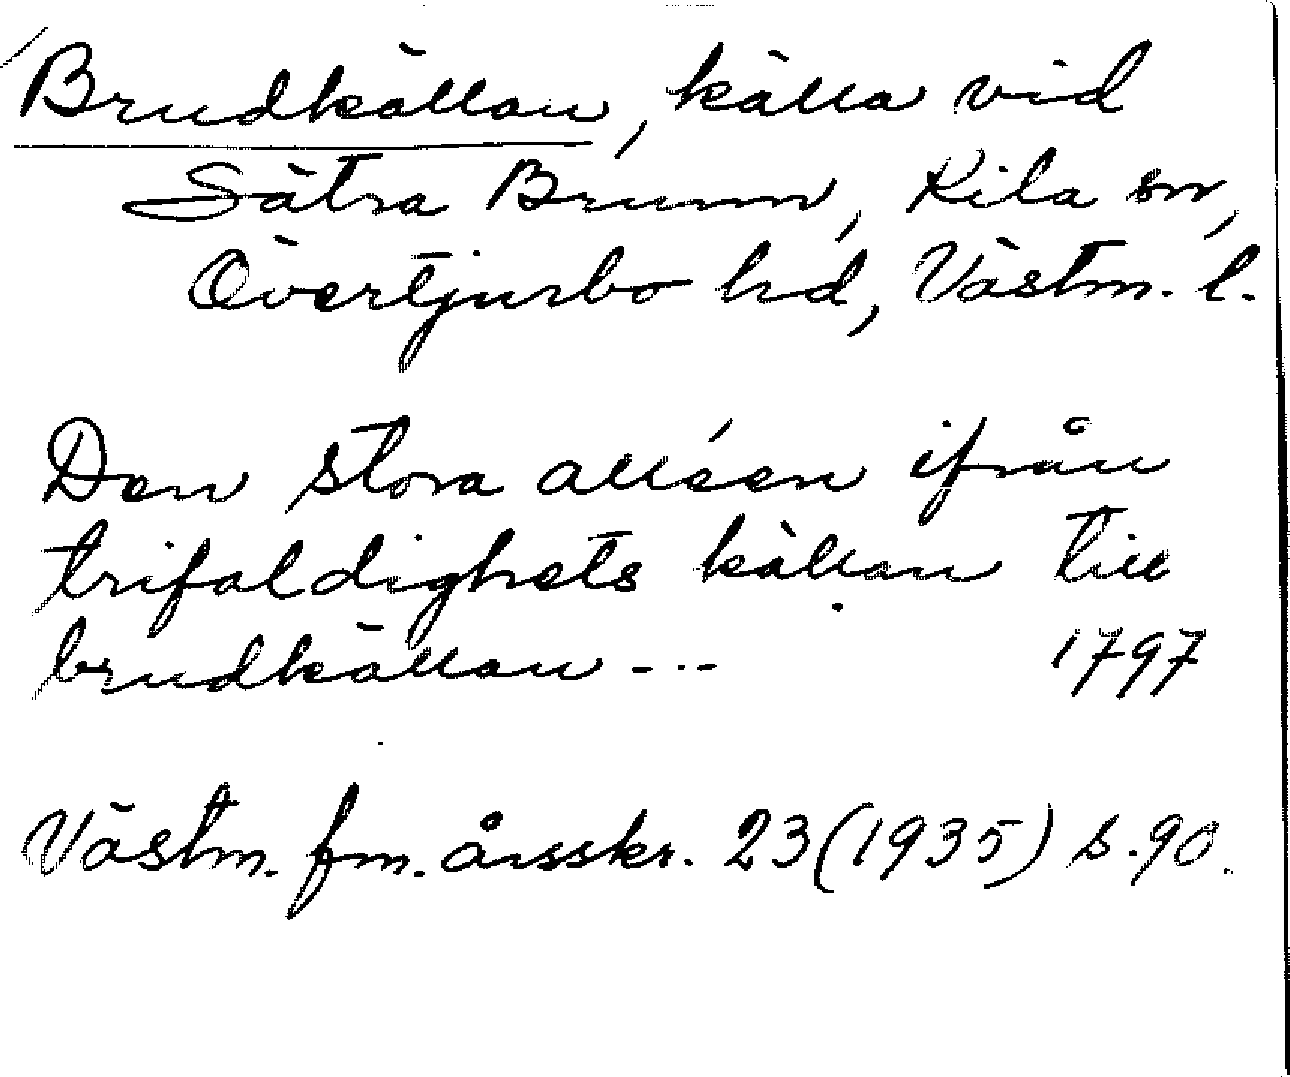 Brudkällan, källa vid
Sätra Brunn, Kila sn,
Övertjurbo hd, Västm. l.
Den stora alléen ifrån
trifaldighets källan till
brudkällan --- 1797
Västm. fm. årsskr. 23 (1935) s. 90.